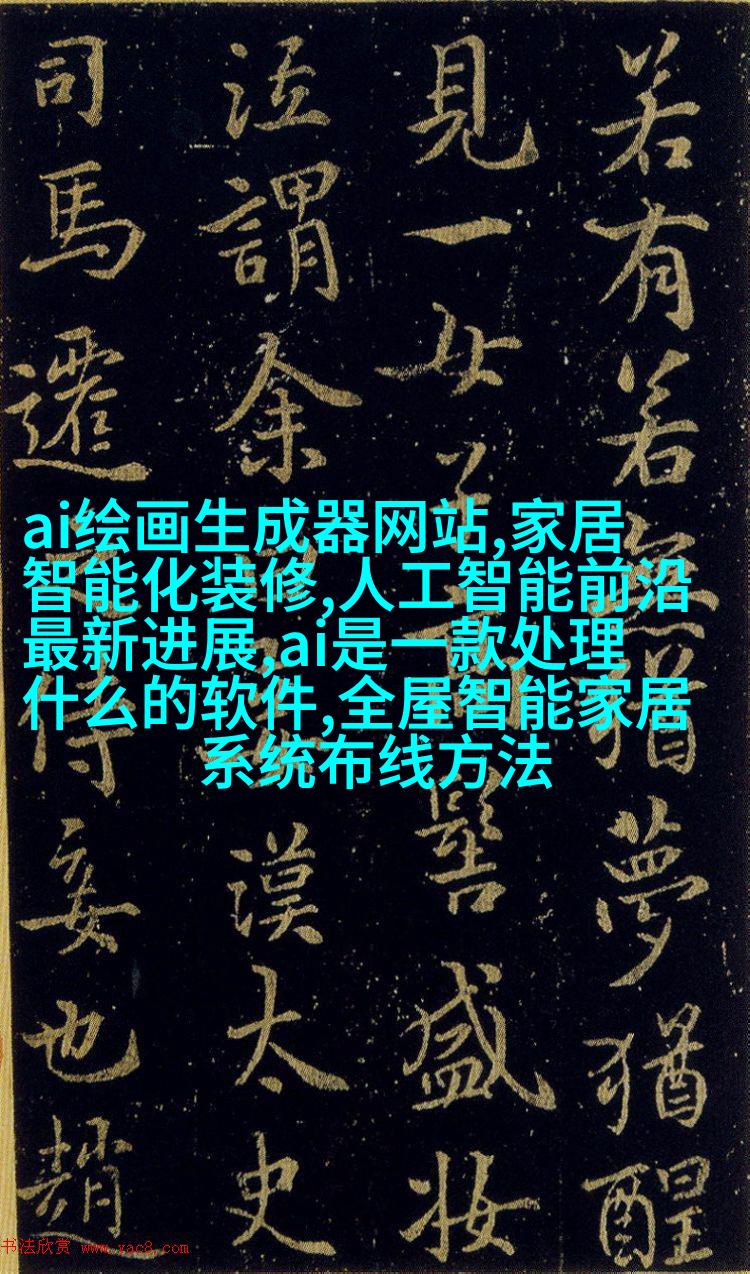 若有若無猶夢猶醒
見一女子髻盛妝
泣謂余曰漢太史
司馬遷之侍妾也趙
ai绘画生成器网站,家居
智能化装修,人工智能前沿
最新进展,ai是一款处理
什么的软件,全屋智能家居
系统布线方法
书法欣赏 www.yac8.com